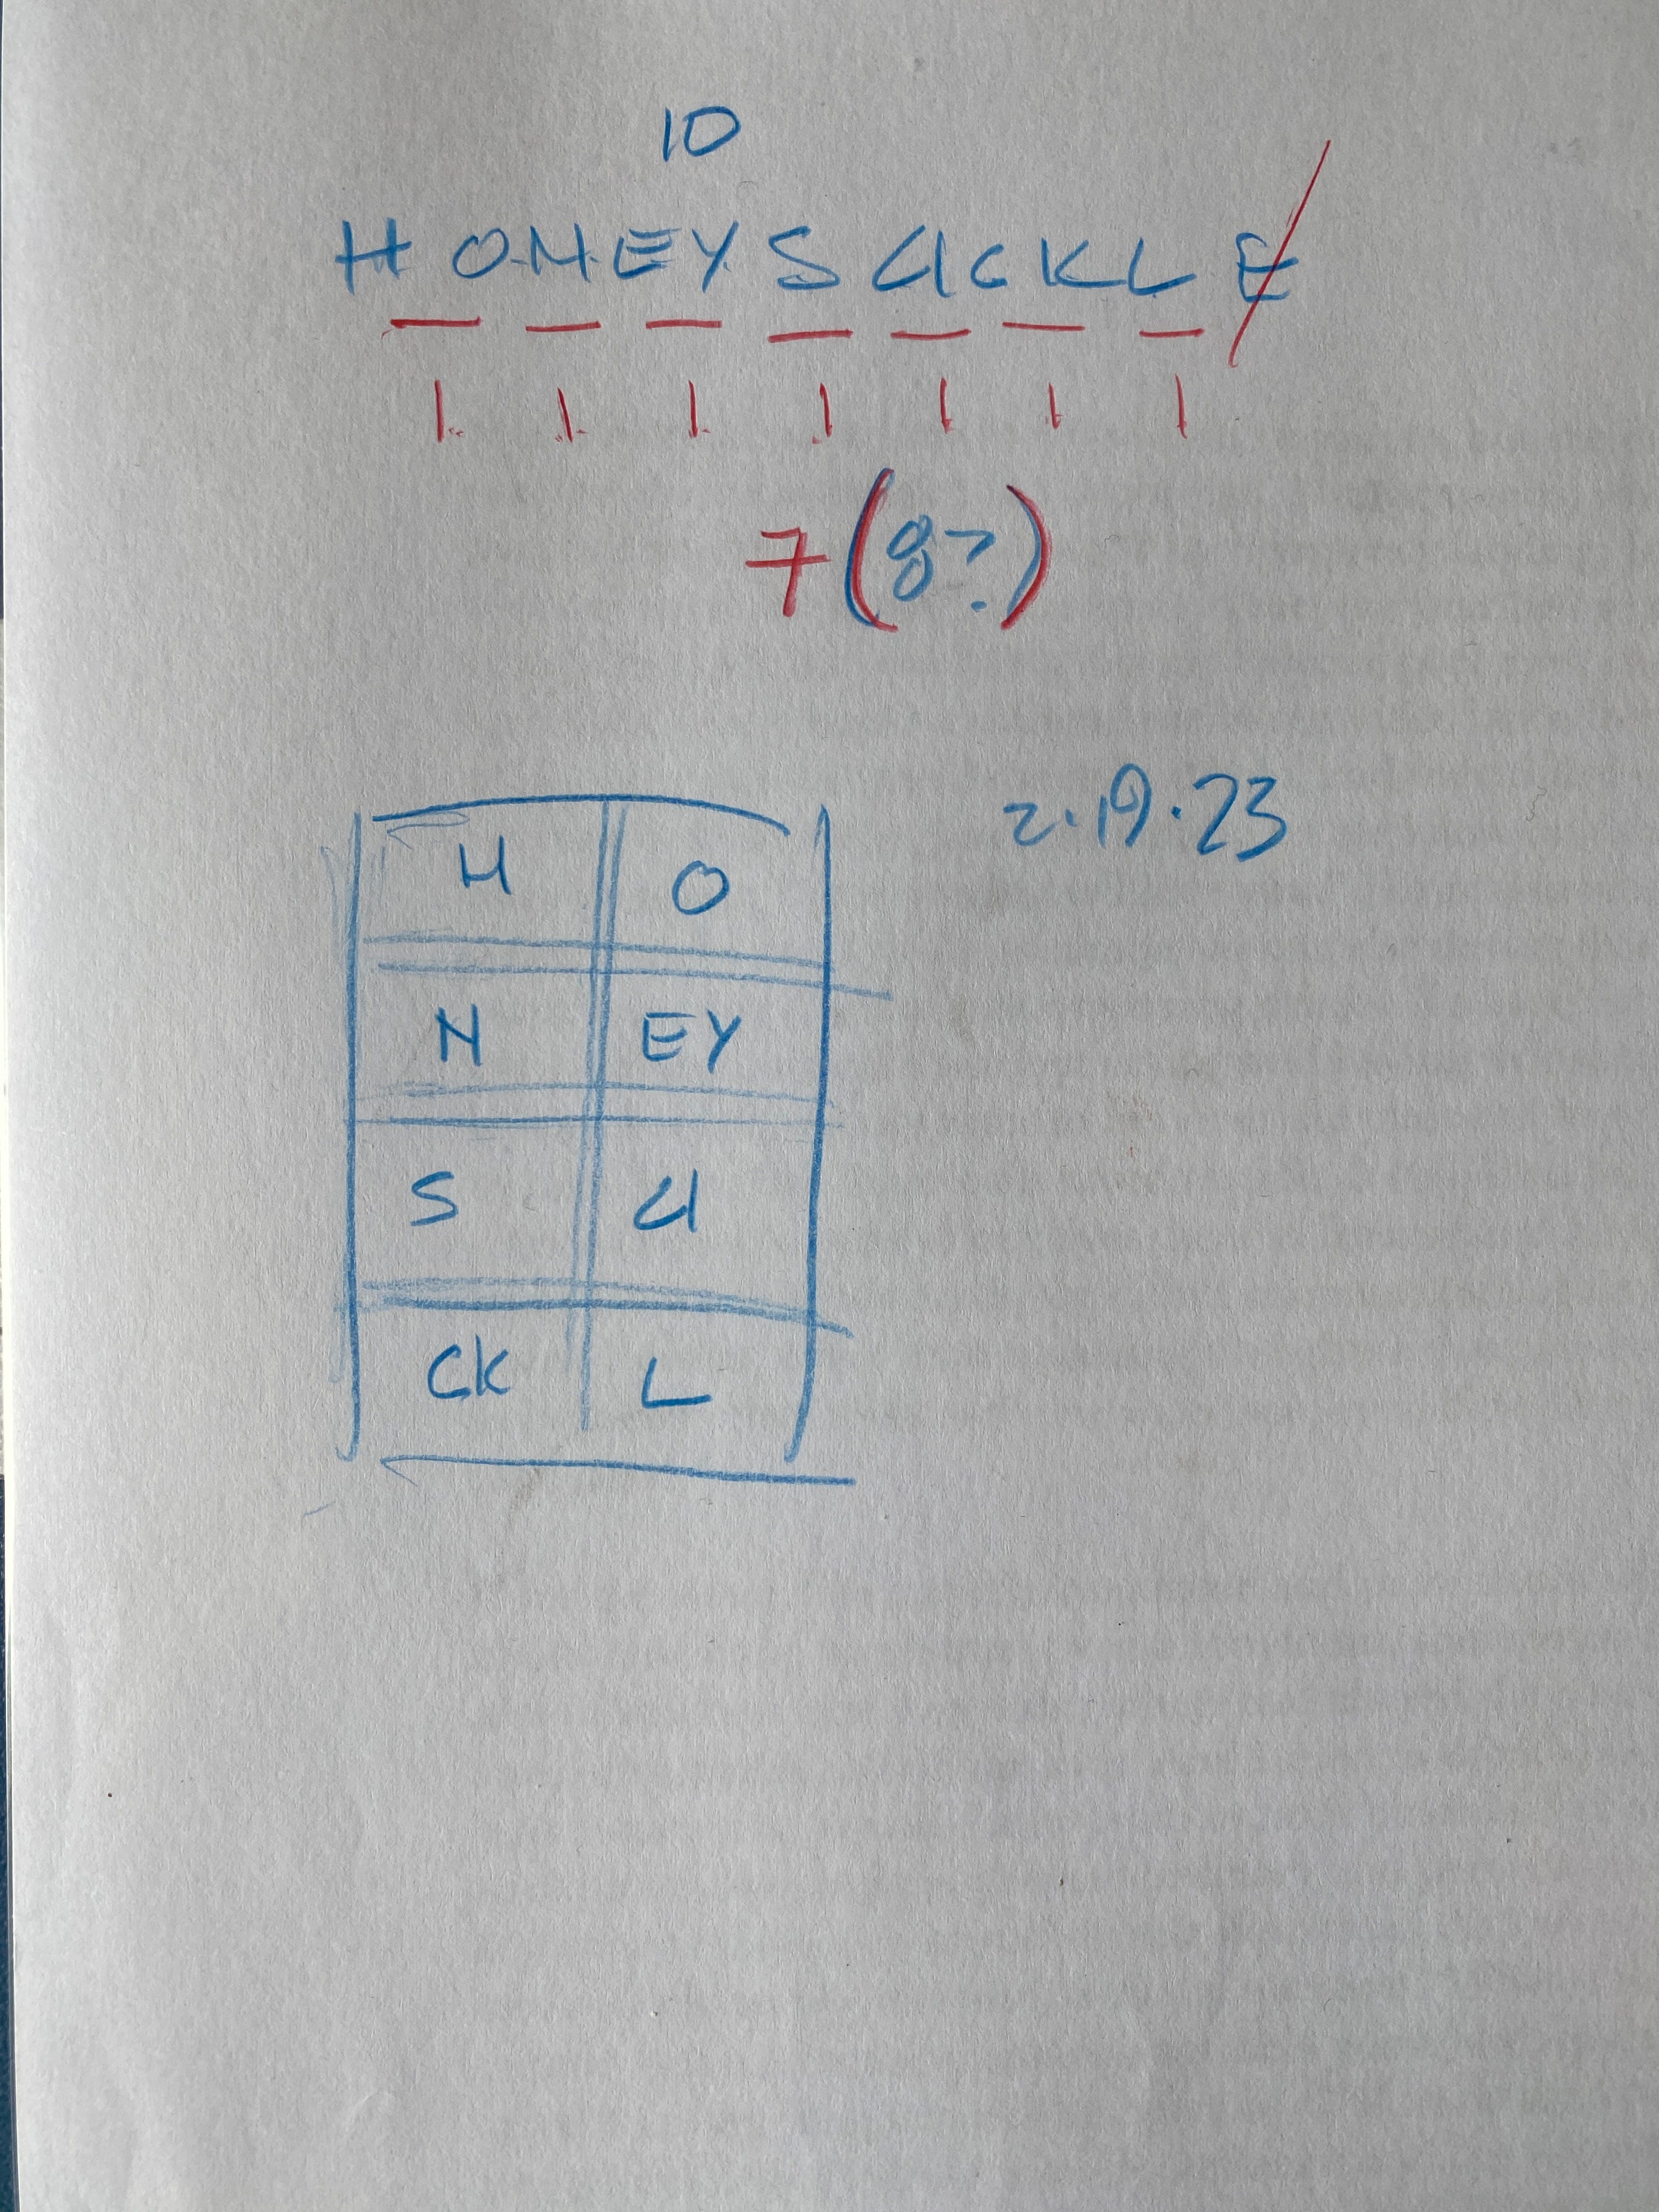 10
HONEYSUCKLE
1 1 1 1 1 1 1
7(8?)
2.19.23
H O
N EY
S U
CK L